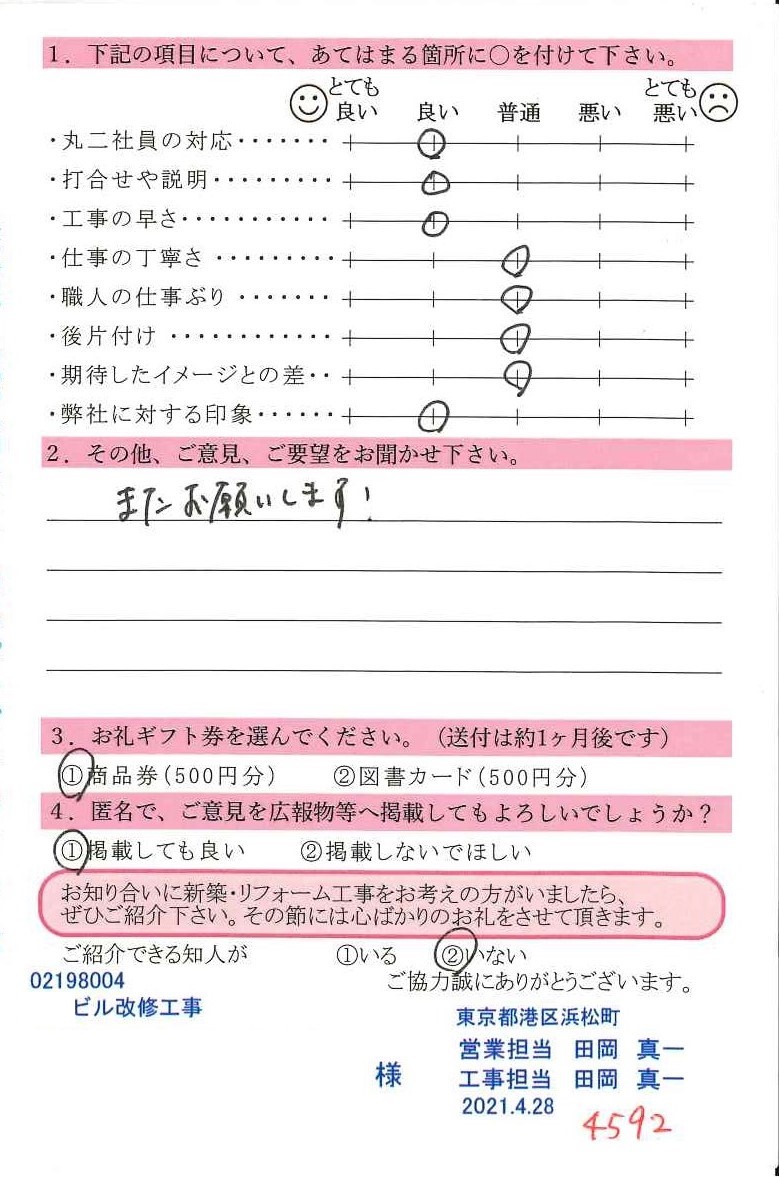 1. 下記の項目について、あてはまる箇所に○を付けて下さい。
とても良い 良い 普通 悪い とても悪い
・丸二社員の対応・・・・・・・
・打合せや説明・・・・・・・・・
・工事の早さ・・・・・・・・・・・
・仕事の丁寧さ ・・・・・・・・・
・職人の仕事ぶり ・・・・・・・
・後片付け ・・・・・・・・・・・・
・期待したイメージとの差・・
・弊社に対する印象・・・・・・
2. その他、ご意見、ご要望をお聞かせ下さい。
またお願いします!
3. お礼ギフト券を選んでください。(送付は約1ヶ月後です)
①商品券(500円分) ②図書カード(500円分)
4. 匿名で、ご意見を広報物等へ掲載してもよろしいでしょうか?
①掲載しても良い ②掲載しないでほしい
お知り合いに新築・リフォーム工事をお考えの方がいましたら、
ぜひご紹介下さい。その節には心ばかりのお礼をさせて頂きます。
ご紹介できる知人が ①いる ②いない
02198004 ご協力誠にありがとうございます。
ビル改修工事
東京都港区浜松町
営業担当 田岡 真一
様 工事担当 田岡 真一
2021.4.28
4592